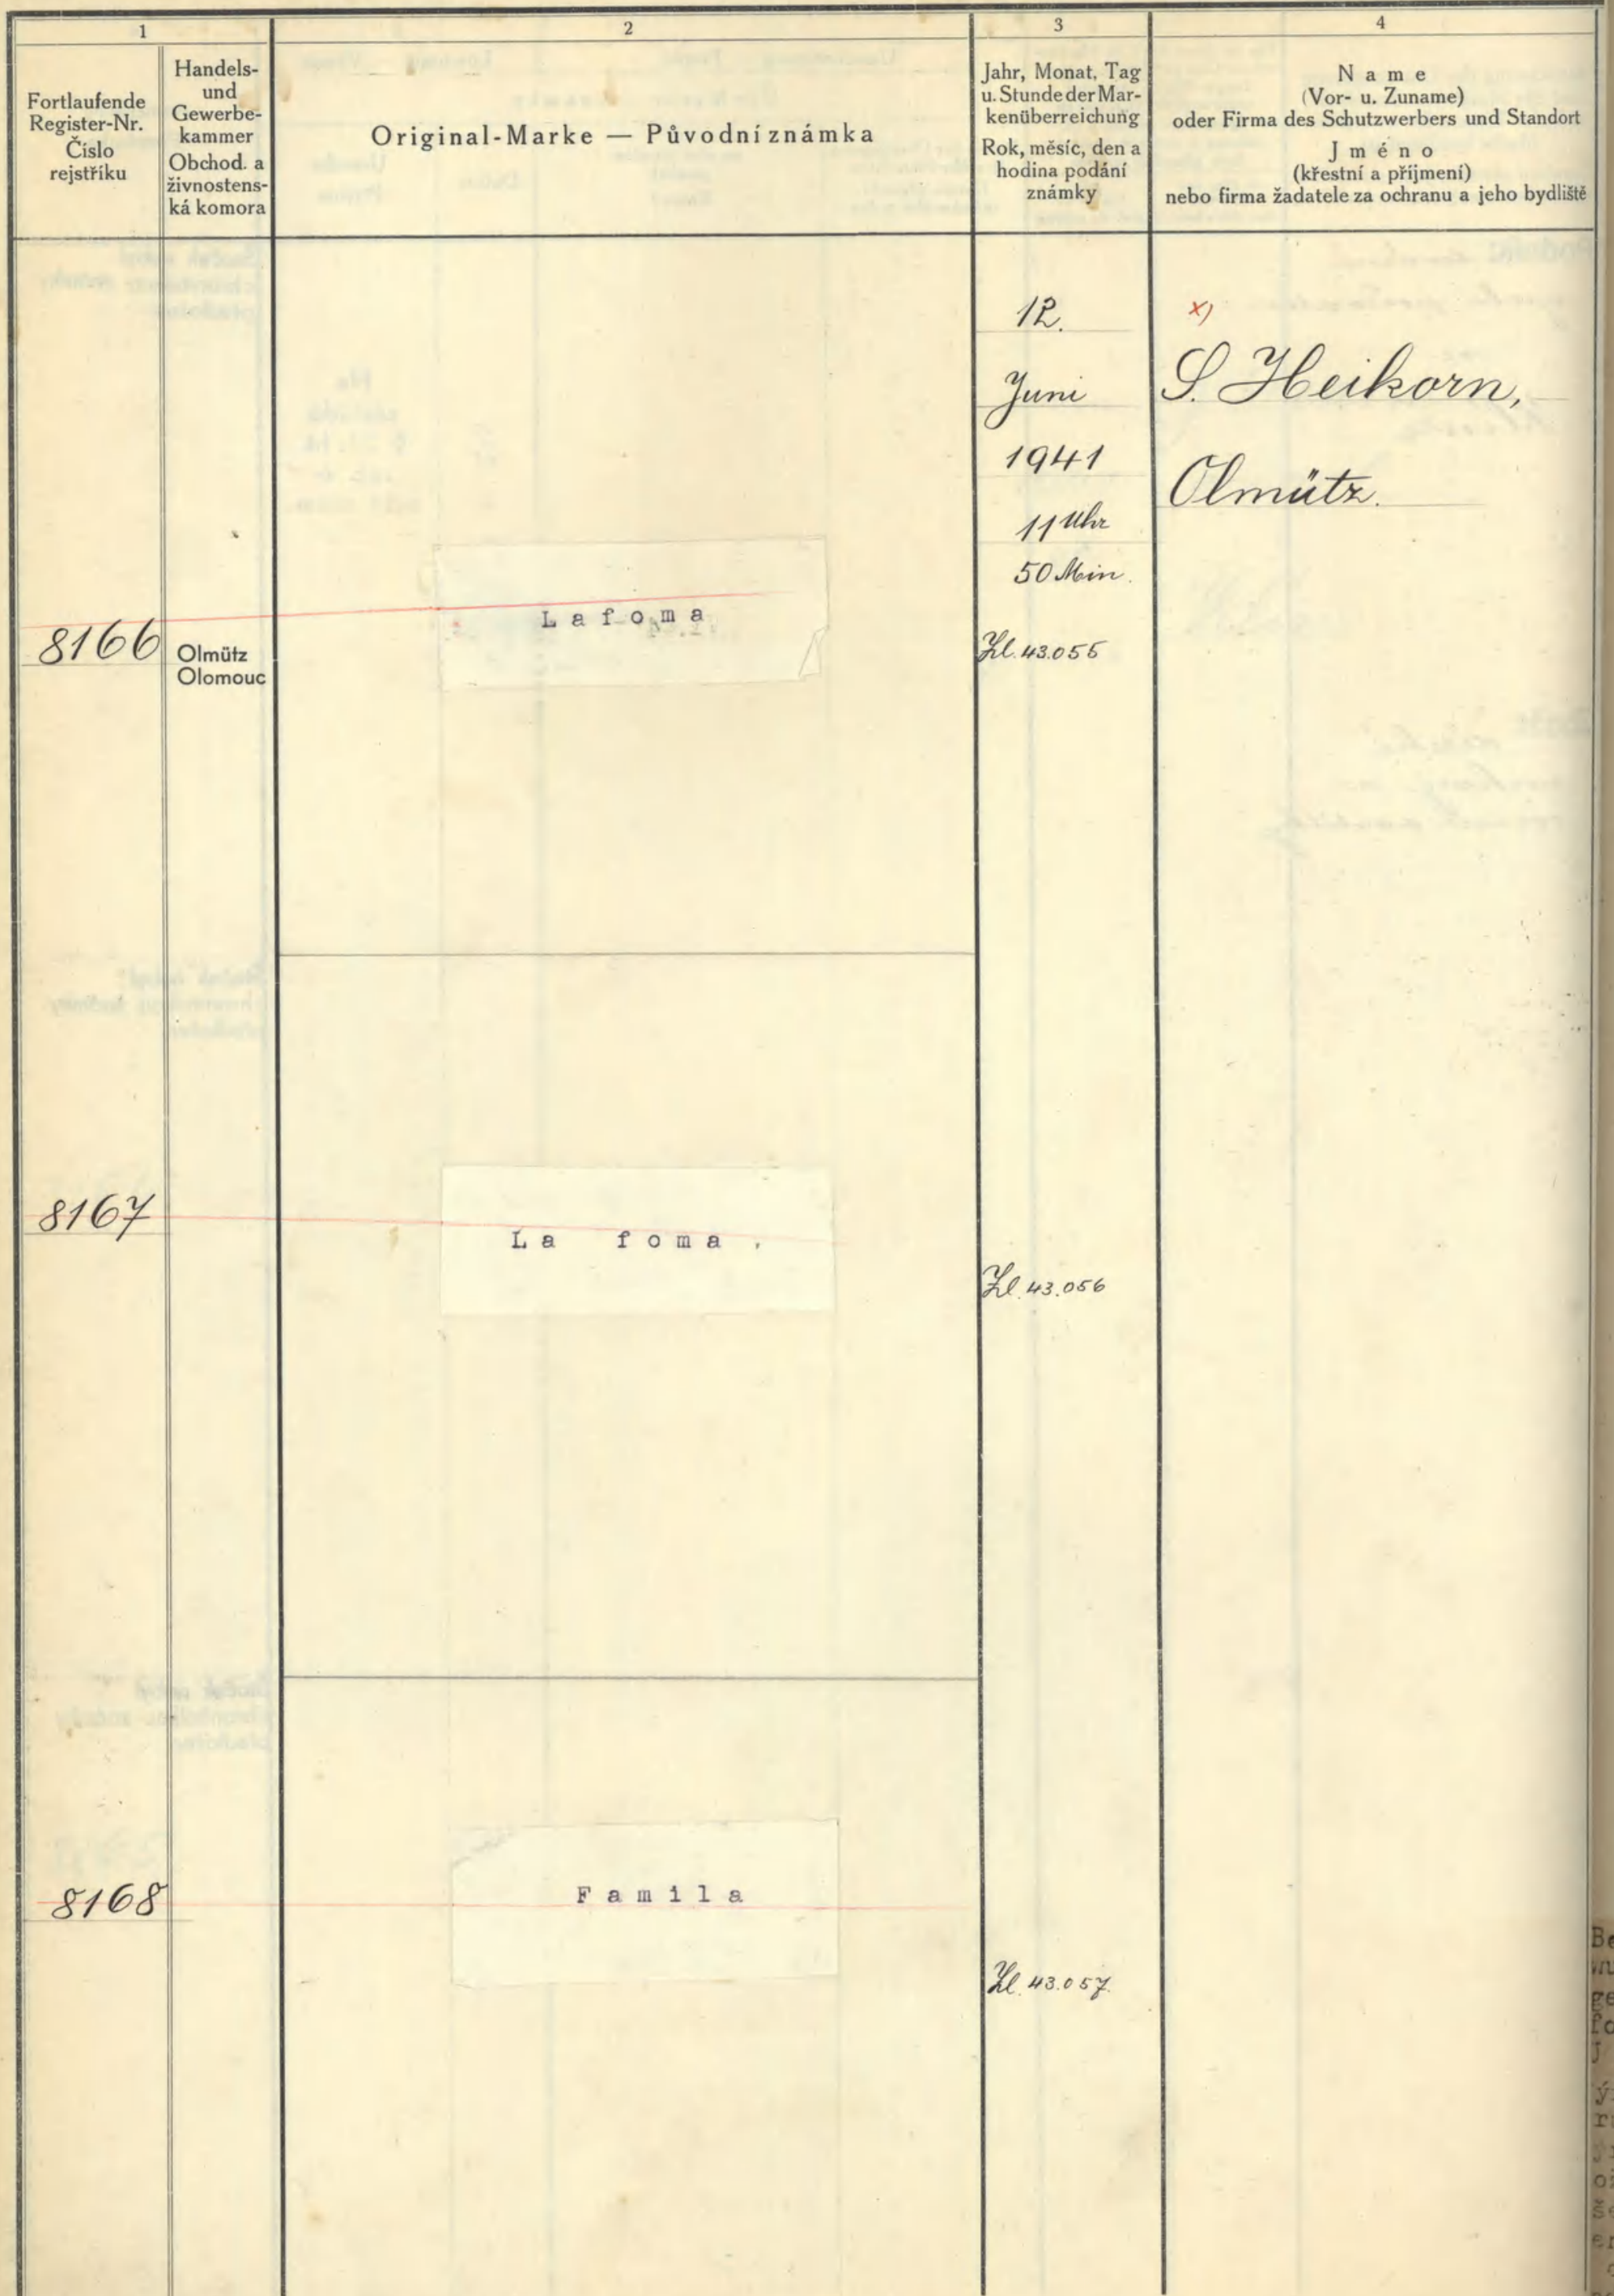 1
Fortlaufende
Register-Nr.
Číslo
rejstříku
Handels-
und
Gewerbe-
kammer
Obchod. a
živnostens-
ká komora
2
Original-Marke — Původní známka
3
Jahr, Monat, Tag
u. Stunde der Mar-
kenüberreichung
Rok, měsíc, den a
hodina podání
známky
4
Name
(Vor- u. Zuname)
oder Firma des Schutzwerbers und Standort
Jméno
(křestní a příjmení)
nebo firma žadatele za ochranu a jeho bydliště
8166
Olmütz
Olomouc
Lafoma
12.
Juni
1941
11 Uhr
50 Min.
Zl. 43.055
x)
S. Heikorn,
Olmütz.
8167
La foma.
Zl. 43.056
8168
Famila
Zl. 43.057.